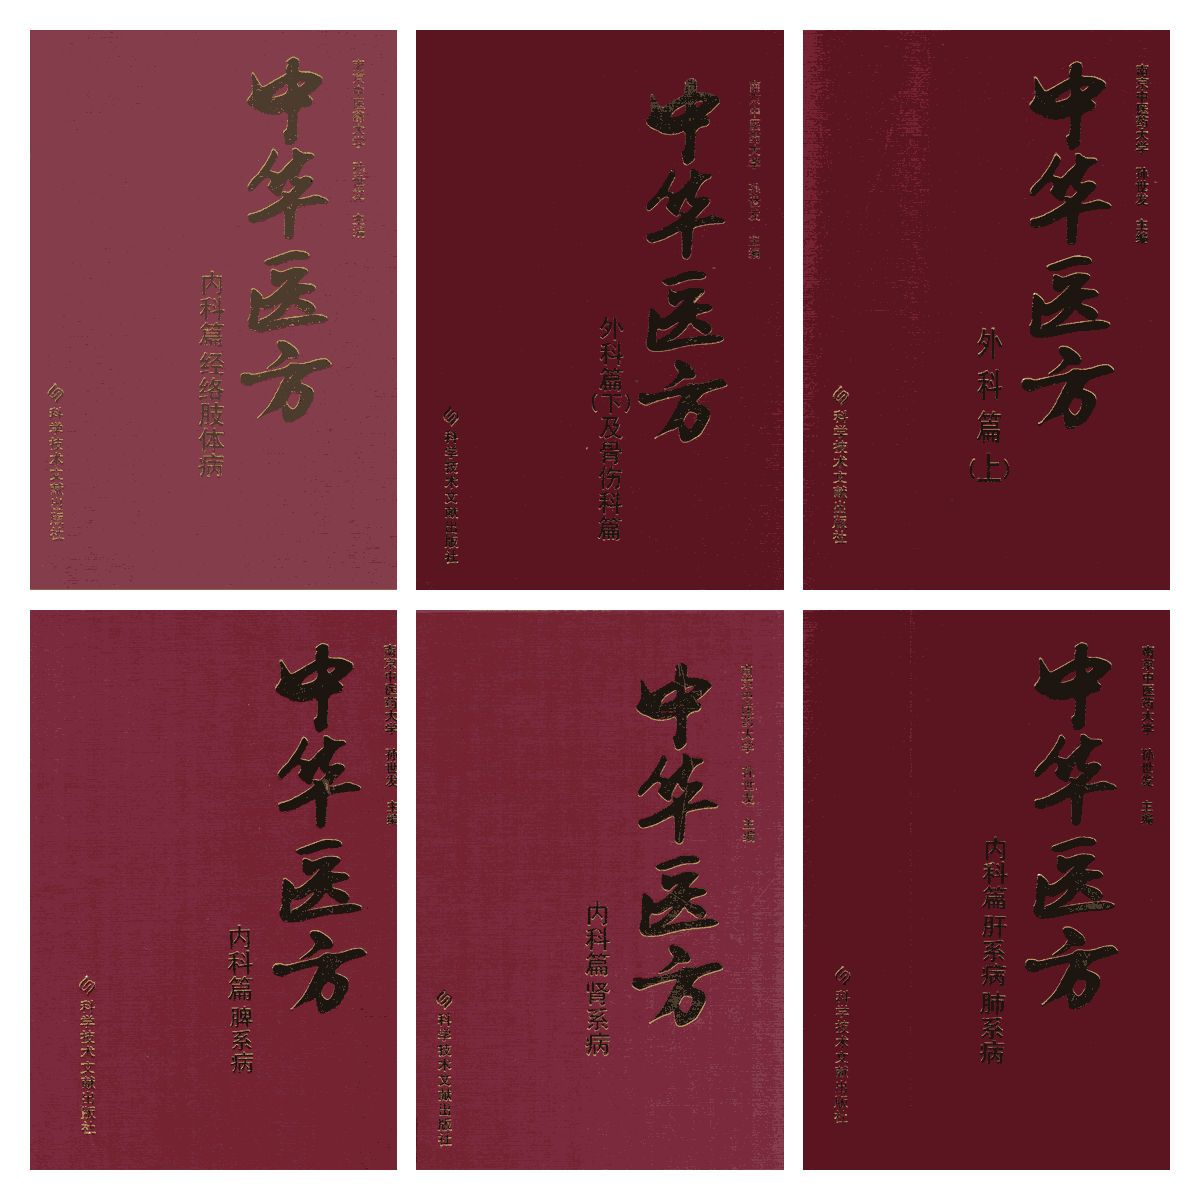 南京中医药大学 孙世发 主编
中华医方
内科篇 经络肢体病
科学技术文献出版社
南京中医药大学 孙世发 主编
中华医方
外科篇(下)及骨伤科篇
科学技术文献出版社
南京中医药大学 孙世发 主编
中华医方
外科篇(上)
科学技术文献出版社
南京中医药大学 孙世发 主编
中华医方
内科篇 脾系病
科学技术文献出版社
南京中医药大学 孙世发 主编
中华医方
内科篇 肾系病
科学技术文献出版社
南京中医药大学 孙世发 主编
中华医方
内科篇 肝系病 肺系病
科学技术文献出版社